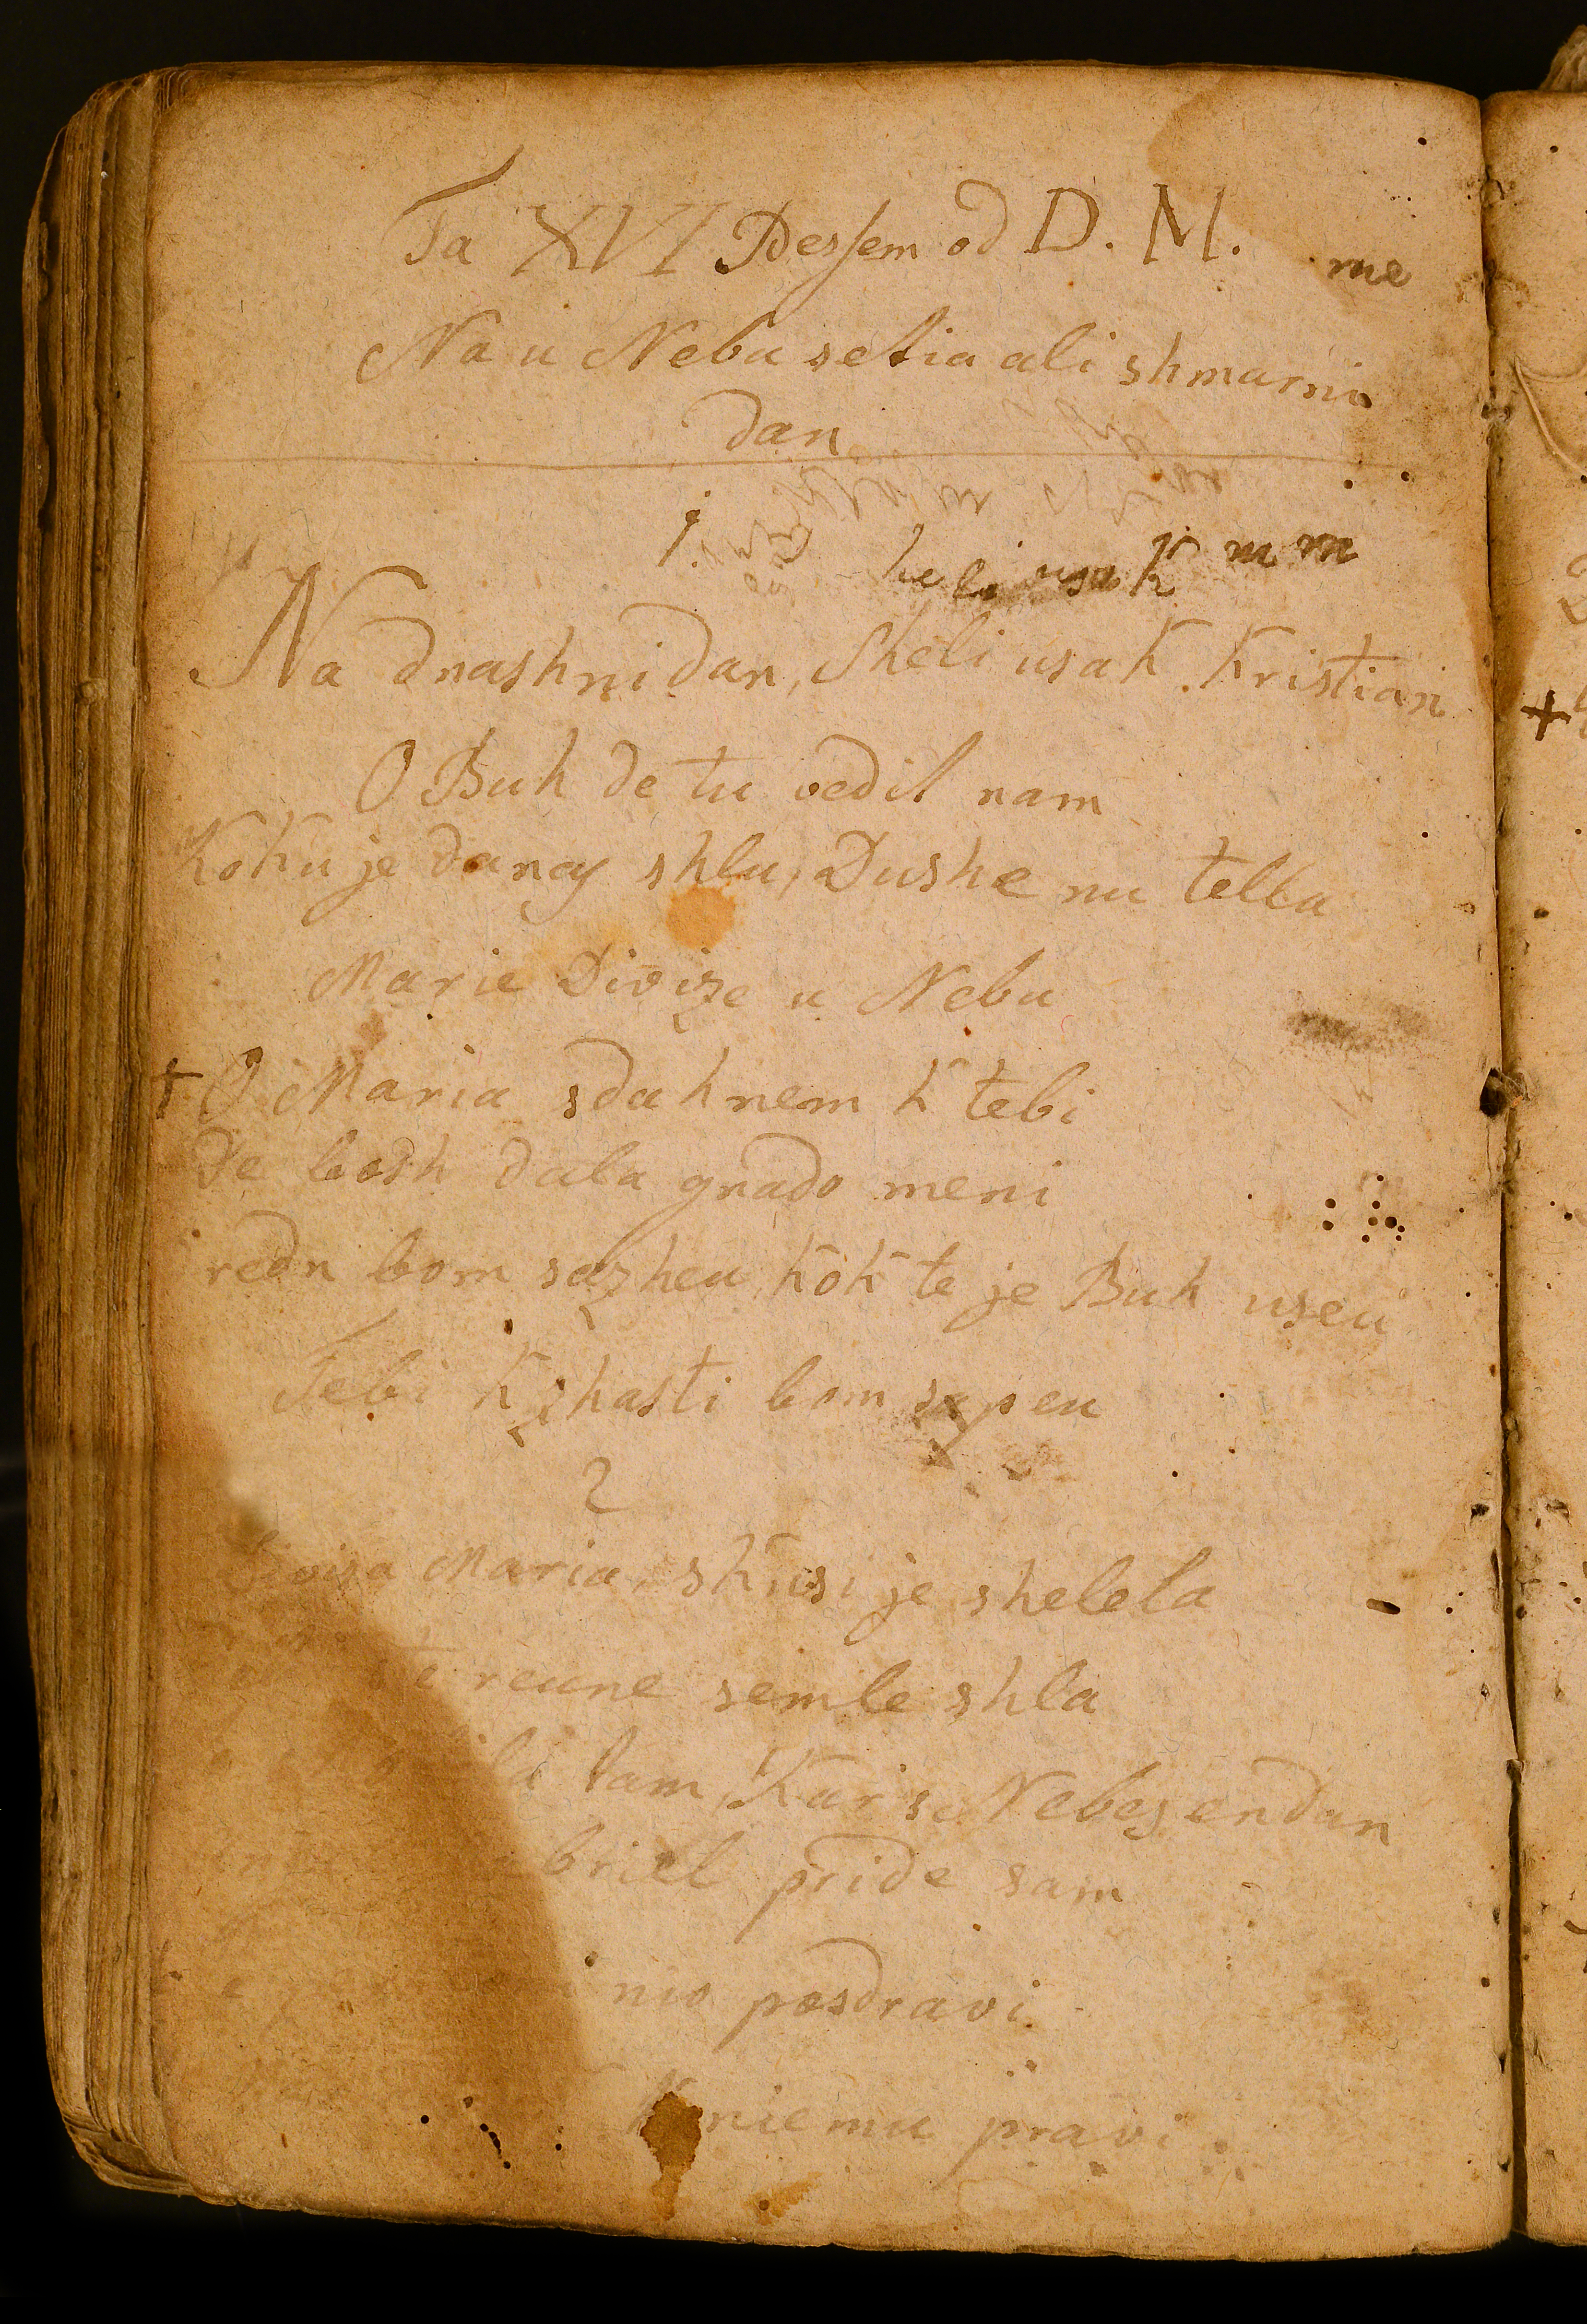 Ta XVI Pessem od D. M.
me
Na u Nebu setia ali shmarni
dan
1.
heli usak m m
Na dnashni dan, Sheli usak Kristian
O Buh de tu vedil nam
Koku je danas shlu, Dushe nu tellu
Marie Divize u Nebu
+ O Maria sdah nem K tebi
De bosh dala gnado meni
redn bom sazheu, Kok te je Buh useu
Tebi K zhasti bom sapeu
2
Maria, skusi je shelela
reune semle shla
tam, Kir s Nebes endan
pride sam
nio posdravi
K niemu pravi